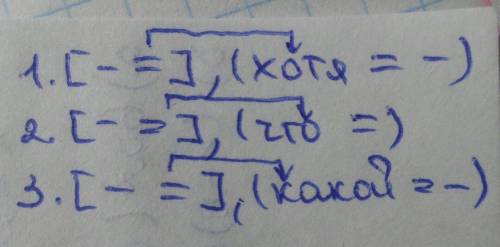 1. [ - = ], (хотя = -)
2. [ - = ], (что =)
3. [ - = ], (какой = -)